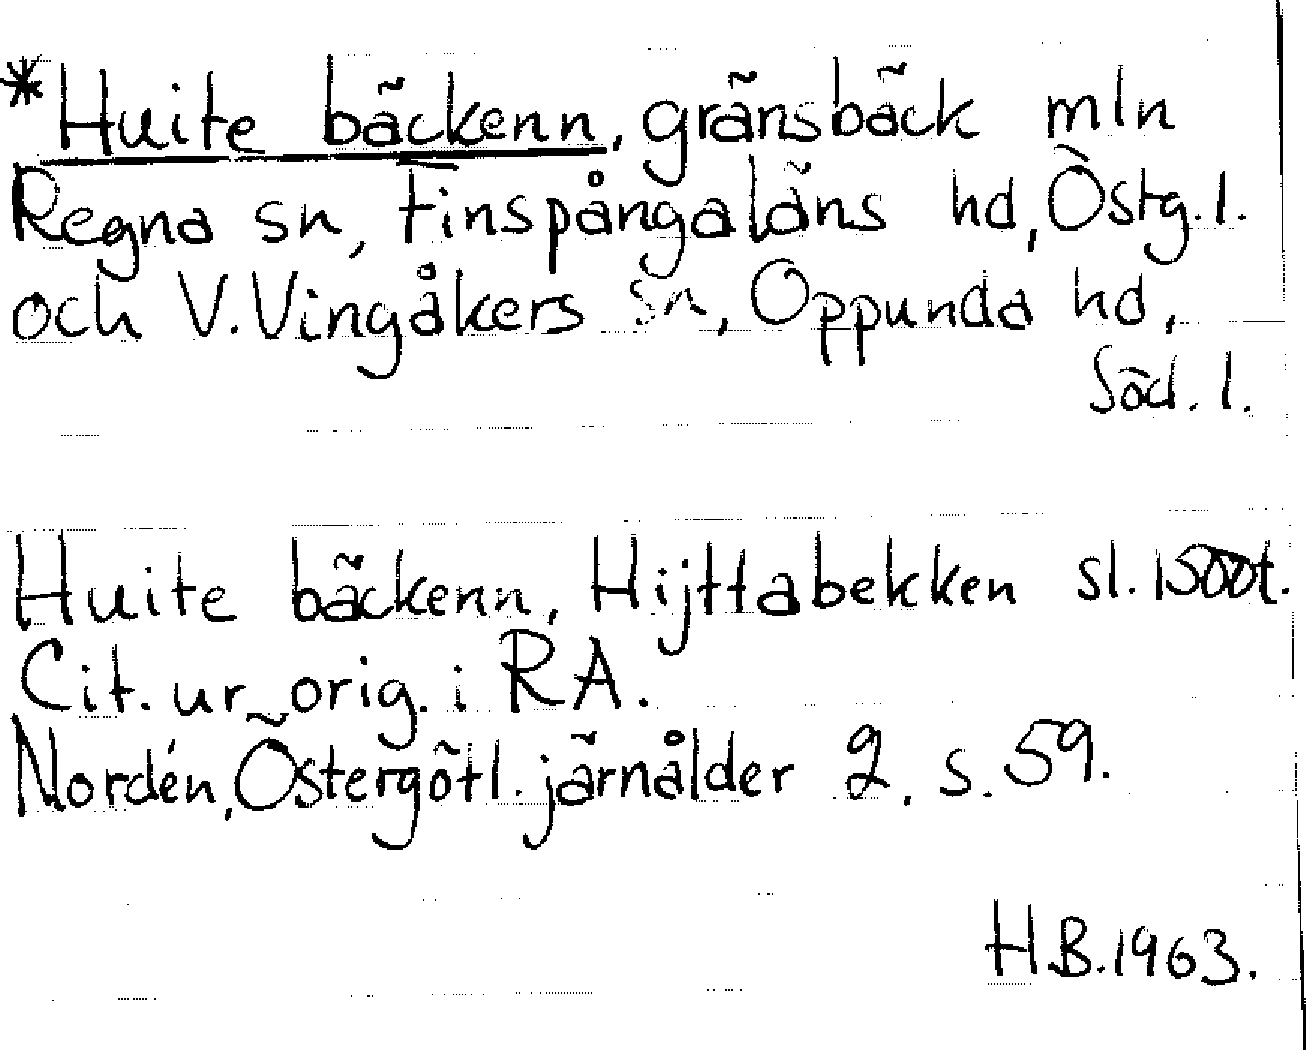 *Huite bäckenn, gränsbäck mln
Regna sn, Finspångaläns hd, Östg.l.
och V.Vingåkers sn, Oppunda hd,
Söd.l.
Huite bäckenn, Hijttabekken sl.1500t.
Cit. ur orig. i RA.
Nordén, Östergötl. järnålder 2, s.59.
H.B.1963.